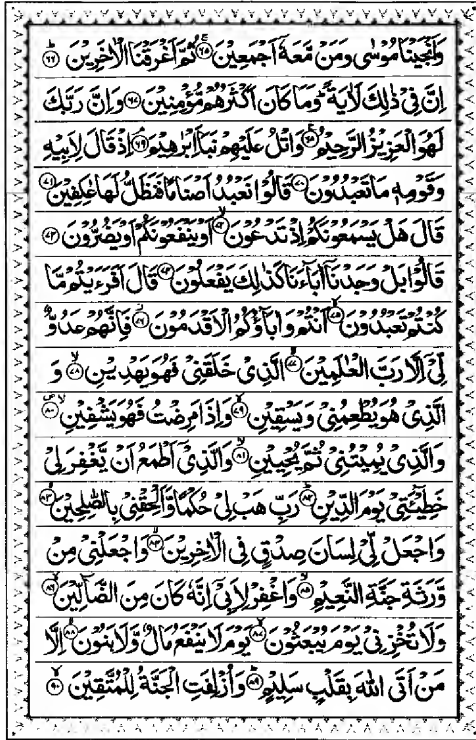 وَاَنْجَيْنَا مُوْسٰى وَمَنْ مَّعَهٗٓ اَجْمَعِيْنَ ۚ۝۶۵ ثُمَّ اَغْرَقْنَا الْاٰخَرِيْنَ ؕ۝۶۶
اِنَّ فِيْ ذٰلِكَ لَاٰيَةً ؕ وَمَا كَانَ اَكْثَرُهُمْ مُّؤْمِنِيْنَ ۝۶۷ وَاِنَّ رَبَّكَ
لَهُوَ الْعَزِيْزُ الرَّحِيْمُ ۝۶۸ وَاتْلُ عَلَيْهِمْ نَبَاَ اِبْرٰهِيْمَ ۘ۝۶۹ اِذْ قَالَ لِاَبِيْهِ
وَقَوْمِهٖ مَا تَعْبُدُوْنَ ۝۷۰ قَالُوْا نَعْبُدُ اَصْنَامًا فَنَظَلُّ لَهَا عٰكِفِيْنَ ۝۷۱
قَالَ هَلْ يَسْمَعُوْنَكُمْ اِذْ تَدْعُوْنَ ۙ۝۷۲ اَوْ يَنْفَعُوْنَكُمْ اَوْ يَضُرُّوْنَ ۝۷۳
قَالُوْا بَلْ وَجَدْنَآ اٰبَآءَنَا كَذٰلِكَ يَفْعَلُوْنَ ۝۷۴ قَالَ اَفَرَءَيْتُمْ مَّا
كُنْتُمْ تَعْبُدُوْنَ ۙ۝۷۵ اَنْتُمْ وَاٰبَآؤُكُمُ الْاَقْدَمُوْنَ ۖ۝۷۶ فَاِنَّهُمْ عَدُوٌّ
لِّيْٓ اِلَّا رَبَّ الْعٰلَمِيْنَ ۙ۝۷۷ الَّذِيْ خَلَقَنِيْ فَهُوَ يَهْدِيْنِ ۙ۝۷۸ وَ
الَّذِيْ هُوَ يُطْعِمُنِيْ وَيَسْقِيْنِ ۙ۝۷۹ وَاِذَا مَرِضْتُ فَهُوَ يَشْفِيْنِ ۙ۝۸۰
وَالَّذِيْ يُمِيْتُنِيْ ثُمَّ يُحْيِيْنِ ۙ۝۸۱ وَالَّذِيْٓ اَطْمَعُ اَنْ يَّغْفِرَ لِيْ
خَطِيْٓـَٔتِيْ يَوْمَ الدِّيْنِ ؕ۝۸۲ رَبِّ هَبْ لِيْ حُكْمًا وَّاَلْحِقْنِيْ بِالصّٰلِحِيْنَ ۙ۝۸۳
وَاجْعَلْ لِّيْ لِسَانَ صِدْقٍ فِي الْاٰخِرِيْنَ ۙ۝۸۴ وَاجْعَلْنِيْ مِنْ
وَّرَثَةِ جَنَّةِ النَّعِيْمِ ۙ۝۸۵ وَاغْفِرْ لِاَبِيْٓ اِنَّهٗ كَانَ مِنَ الضَّآلِّيْنَ ۙ۝۸۶
وَلَا تُخْزِنِيْ يَوْمَ يُبْعَثُوْنَ ۙ۝۸۷ يَوْمَ لَا يَنْفَعُ مَالٌ وَّلَا بَنُوْنَ ۙ۝۸۸ اِلَّا
مَنْ اَتَى اللّٰهَ بِقَلْبٍ سَلِيْمٍ ؕ۝۸۹ وَاُزْلِفَتِ الْجَنَّةُ لِلْمُتَّقِيْنَ ۙ۝۹۰